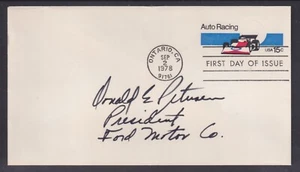 Auto Racing
USA 15c
ONTARIO, CA
SEP
2
1978
91761
FIRST DAY OF ISSUE
Donald E Petersen
President
Ford Motor Co.